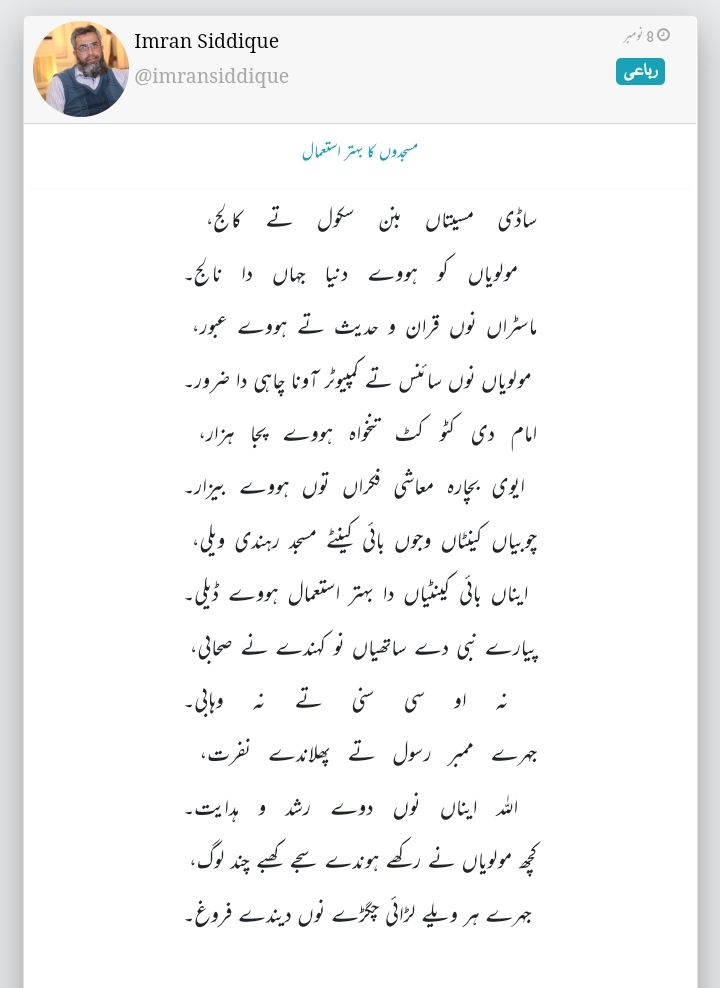 Imran Siddique
@imransiddique
8 نومبر
رباعی
مسجدوں کا بہتر استعمال
ساڈی مسیتاں بنن سکول تے کالج،
مولویاں کو ہووے دنیا جہاں دا نالج۔
ماسٹراں نوں قران و حدیث تے ہووے عبور،
مولویاں نوں سائنس تے کمپیوٹر آونا چاہی دا ضرور۔
امام دی کٹو کٹ تنخواہ ہووے پجا ہزار،
ایوی بچارہ معاشی فکراں توں ہووے بیزار۔
چوبیاں کینٹاں وچوں بائی کینٹے مسجد رہندی ویلی،
ایناں بائی کینٹیاں دا بہتر استعمال ہووے ڈیلی۔
پیارے نبی دے ساتھیاں نو کہندے نے صحابی،
نہ او سی سنی تے نہ وہابی۔
جہرے ممبر رسول تے پھلاندے نفرت،
اللہ ایناں نوں دوے رشد و ہدایت۔
کچھ مولویاں نے رکھے ہوندے سجے کھبے چند لوگ،
جہرے ہر ویلے لڑائی چگڑے نوں دیندے فروغ۔